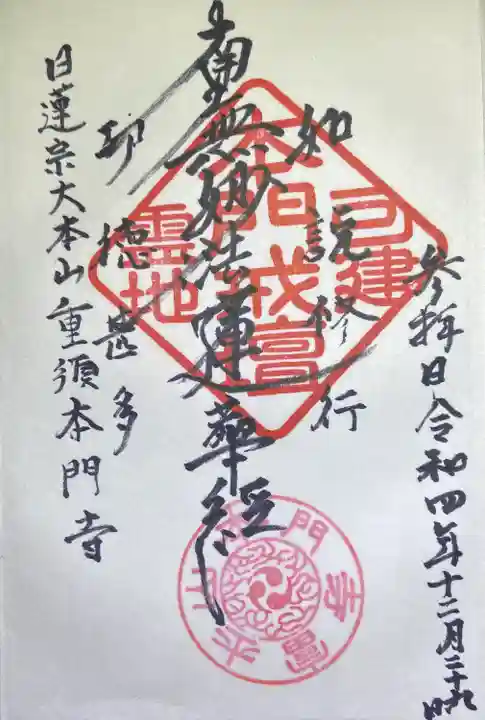 参拝日令和四年十二月二十九日
如説修行
南無妙法蓮華経
功徳甚多
日蓮宗大本山重須本門寺
可建
本門戒壇
霊地